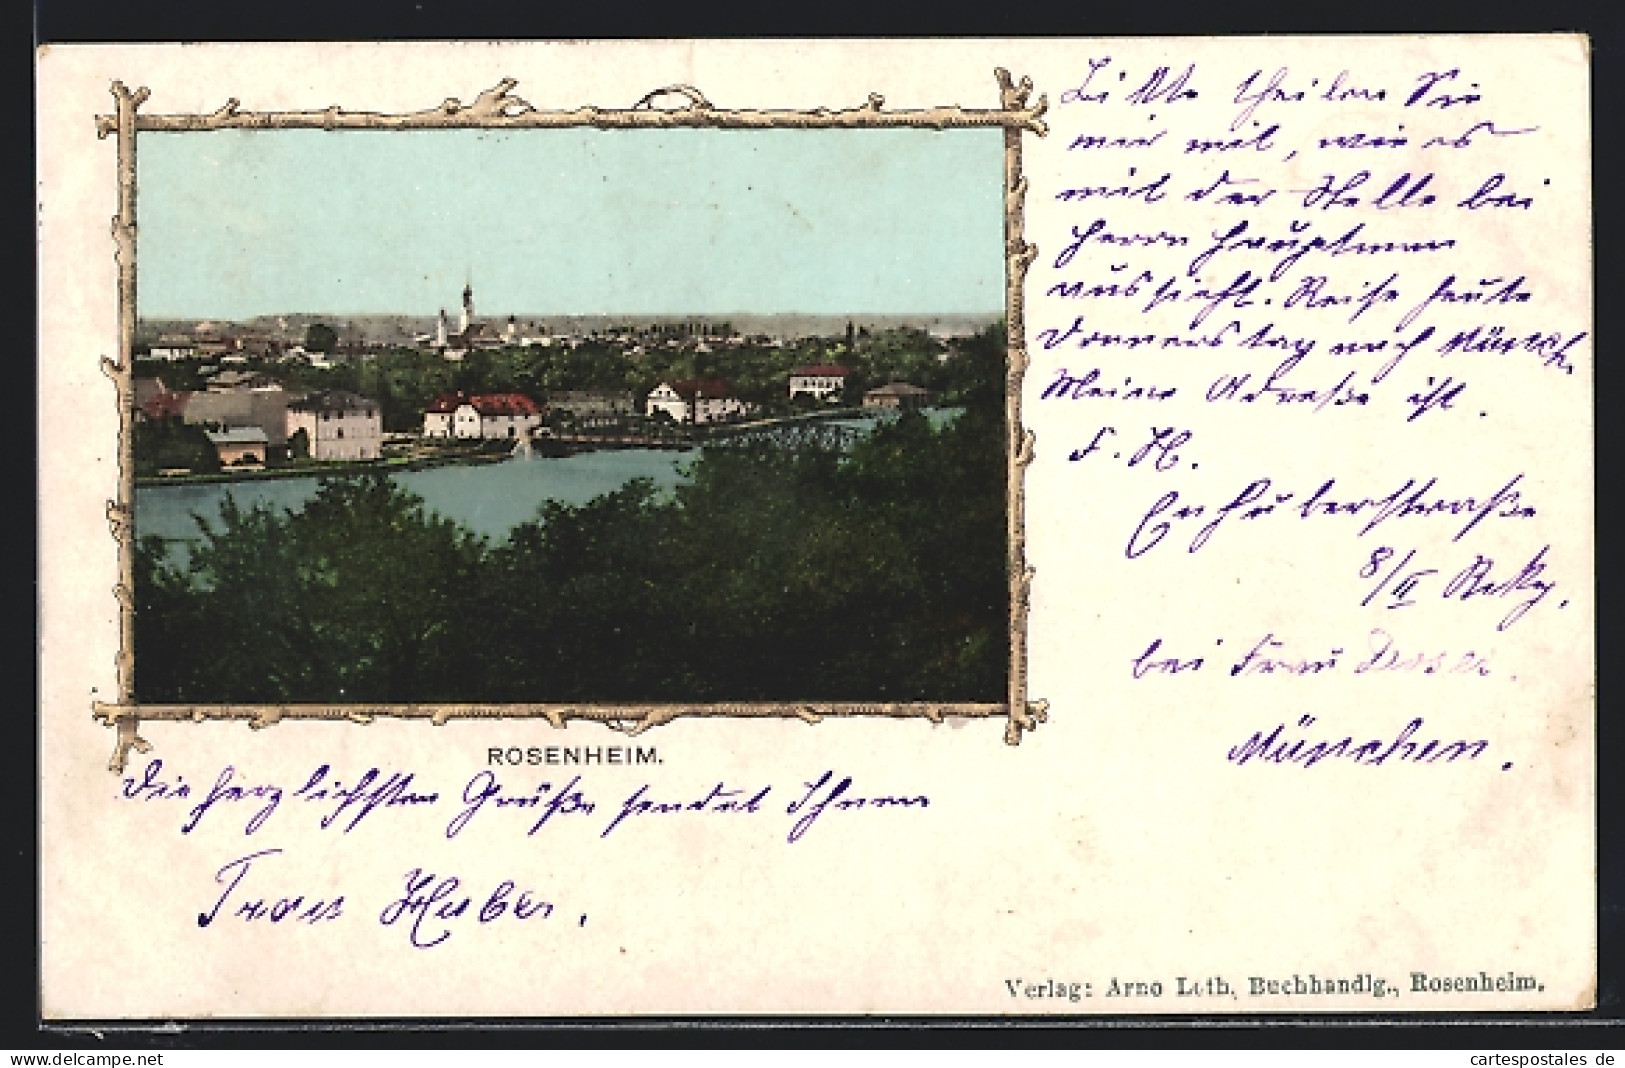 Bitte theilen Sie
mir mit, wie es
mit der Stelle bei
Herrn Hauptmann
aussieht. Reise heute
Donnerstag nach Münch.
Meine Adreße ist.
F. H.
Enhuberstraße
8/II Rckg.
bei Frau
München.
ROSENHEIM.
Die herzlichsten Grüße sendet Ihnen
Frau Huber.
Verlag: Arno Loth, Buchhandlg., Rosenheim.
delcampe.net
cartespostales de